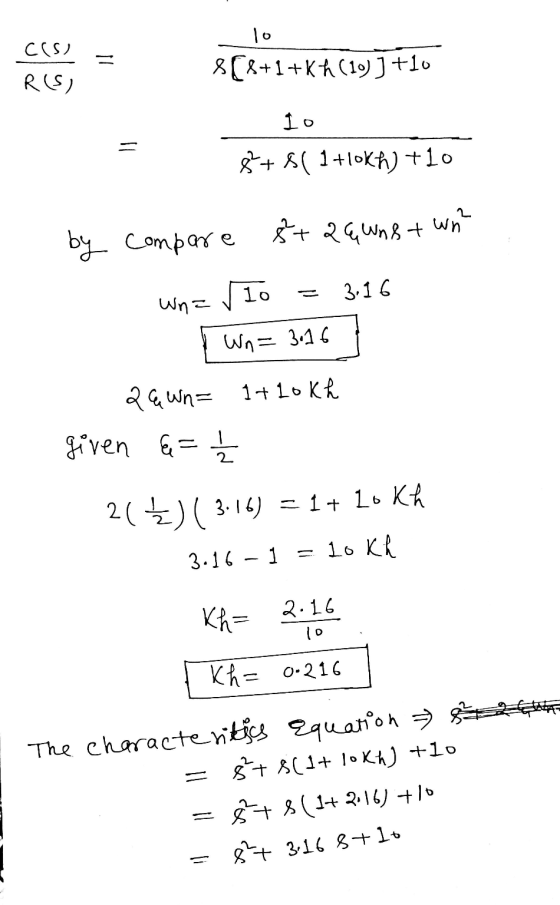 C(S)/R(S) = 10 / s[s+1+Kh(10)]+10
= 10 / s²+s(1+10Kh)+10
by compare s²+2ξWns+Wn²
Wn = √10 = 3.16
Wn = 3.16
2ξWn = 1+10Kh
given ξ = 1/2
2(1/2)(3.16) = 1+10Kh
3.16 - 1 = 10Kh
Kh = 2.16/10
Kh = 0.216
The characteritics Equation ⇒
= s²+s(1+10Kh)+10
= s²+s(1+2.16)+10
= s²+3.16s+10